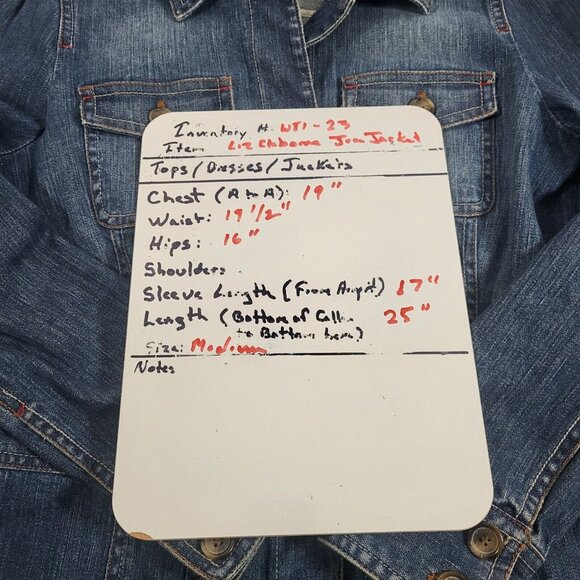 Inventory #: WJ1-23
Item Liz Claiborne Jean Jacket
Tops/Dresses/Jackets
Chest (A to A): 19"
Waist: 19 1/2"
Hips: 16"
Shoulders
Sleeve Length (From Armpit) 17"
Length (Bottom of Collar 25"
to Bottom hem)
Size: Medium
Notes